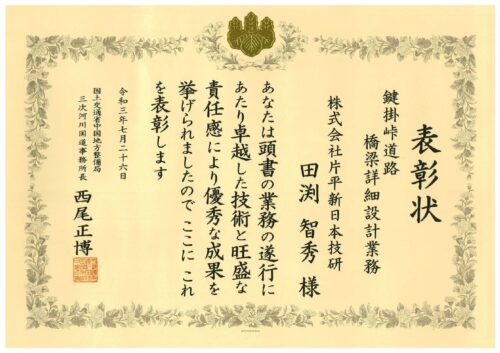 表彰状
鍵掛峠道路
橋梁詳細設計業務
株式会社片平新日本技研
田渕 智秀 様
あなたは頭書の業務の遂行に
あたり卓越した技術と旺盛な
責任感により優秀な成果を
挙げられましたので ここに これ
を表彰します
令和三年七月二十六日
国土交通省中国地方整備局
三次河川国道事務所長
西尾正博